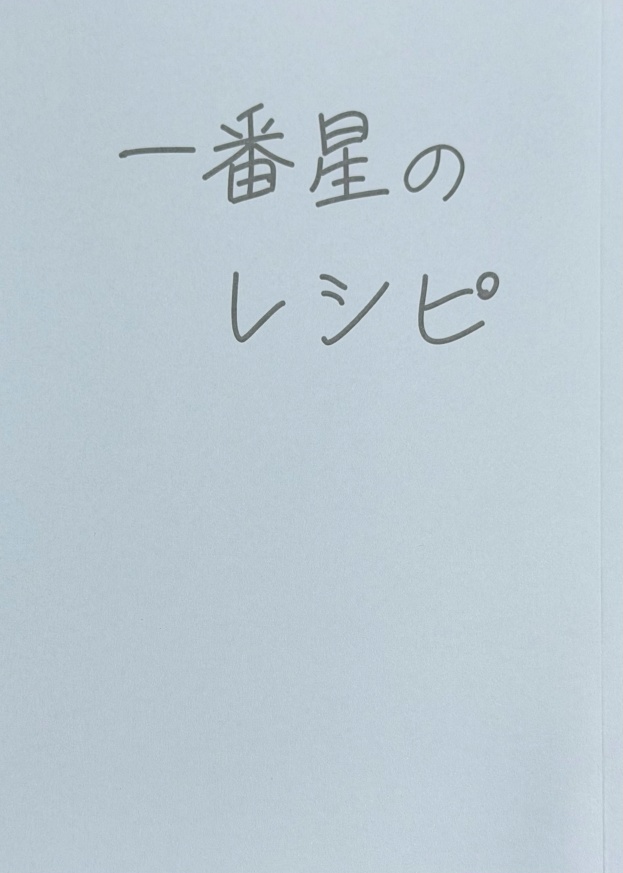 一番星の
レシピ